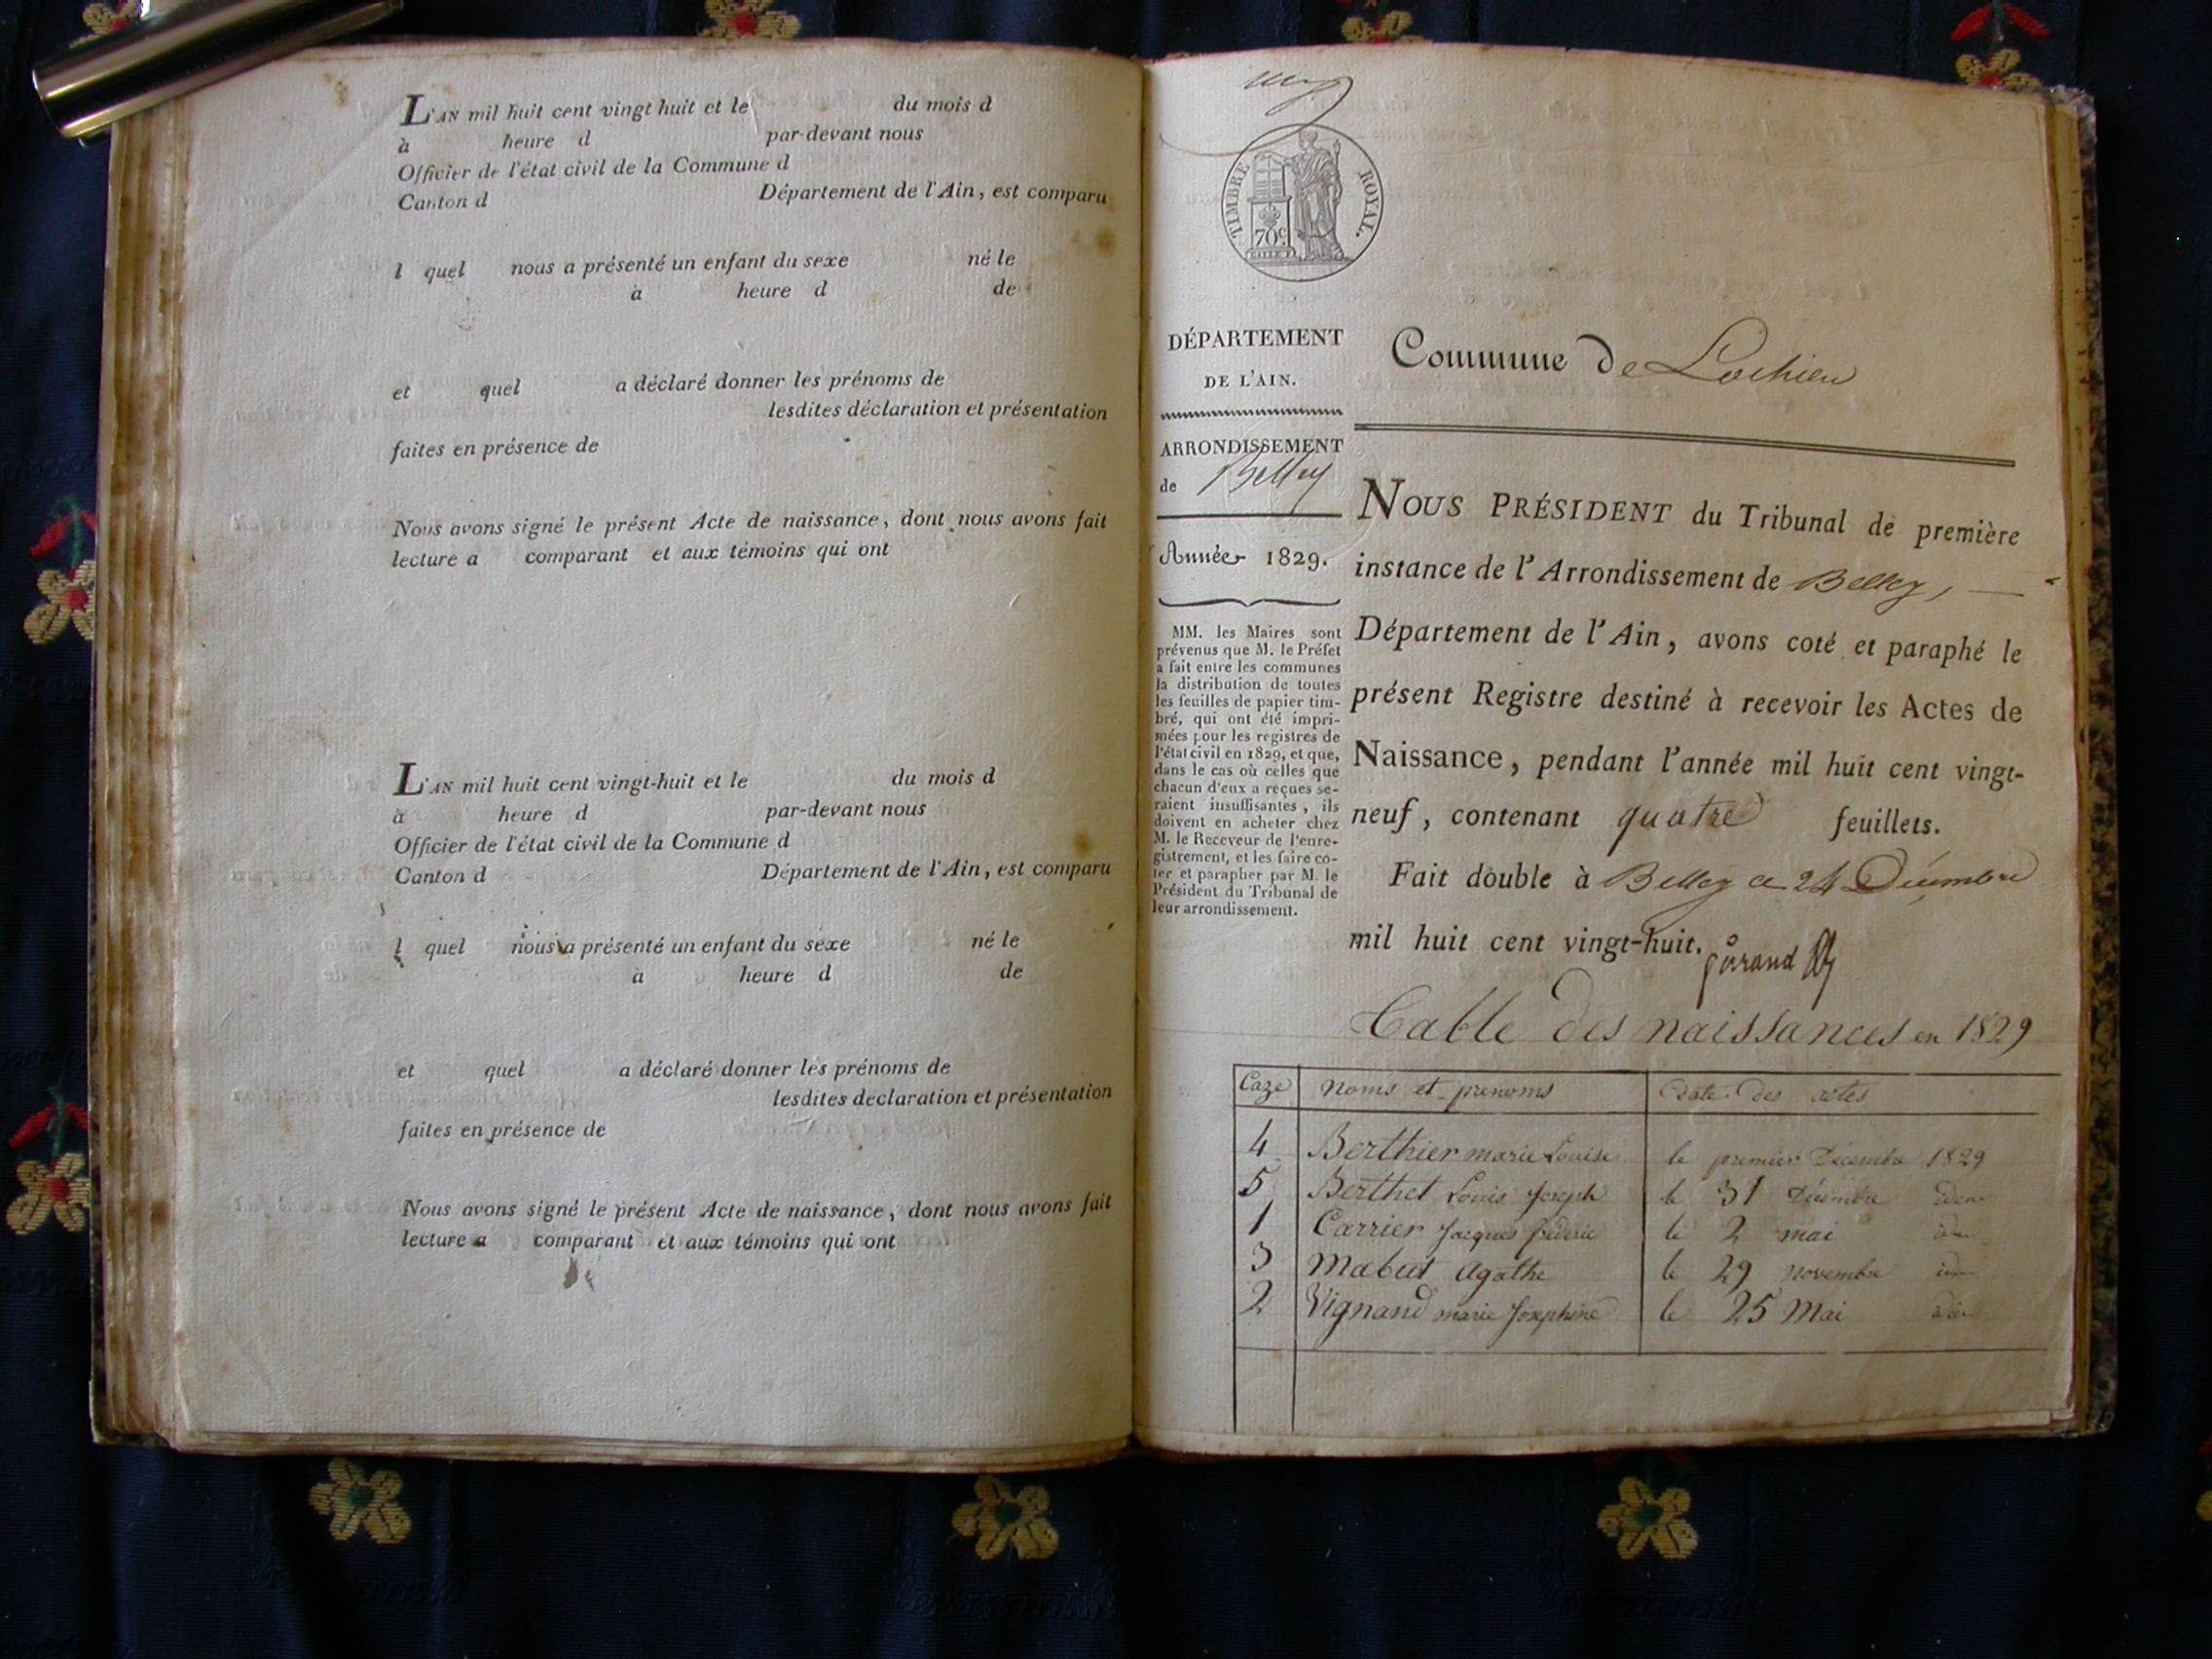 L'AN mil huit cent vingt huit et le du mois d
à heure d par-devant nous
Officier de l'état civil de la Commune d
Canton d Département de l'Ain, est comparu
l quel nous a présenté un enfant du sexe né le
à heure d de
et quel a déclaré donner les prénoms de
lesdites déclaration et présentation
faites en présence de
Nous avons signé le présent Acte de naissance, dont nous avons fait
lecture a comparant et aux témoins qui ont
L'AN mil huit cent vingt-huit et le du mois d
à heure d par-devant nous
Officier de l'état civil de la Commune d
Canton d Département de l'Ain, est comparu
l quel nous a présenté un enfant du sexe né le
à heure d de
et quel a déclaré donner les prénoms de
lesdites declaration et présentation
faites en présence de
Nous avons signé le présent Acte de naissance, dont nous avons fait
lecture a comparant et aux témoins qui ont
TIMBRE ROYAL.
70c.
DÉPARTEMENT
DE L'AIN.
ARRONDISSEMENT
de Belley
Année 1829.
MM. les Maires sont
prévenus que M. le Préfet
a fait entre les communes
la distribution de toutes
les feuilles de papier tim-
bré, qui ont été impri-
mées pour les registres de
l'état civil en 1829, et que,
dans le cas où celles que
chacun d'eux a reçues se-
raient insuffisantes, ils
doivent en acheter chez
M. le Receveur de l'enre-
gistrement, et les faire co-
ter et parapher par M. le
Président du Tribunal de
leur arrondissement.
Commune de Lochieu
NOUS PRÉSIDENT du Tribunal de première
instance de l'Arrondissement de Belley,
Département de l'Ain, avons coté et paraphé le
présent Registre destiné à recevoir les Actes de
Naissance, pendant l'année mil huit cent vingt-
neuf, contenant quatre feuillets.
Fait double à Belley ce 24 Décembre
mil huit cent vingt-huit.
Table des naissances en 1829
Caze Noms et prenoms Date des actes
4 Berthier marie Louise le premier Décembre 1829
5 Berthet Louis Joseph le 31 Décembre idem
1 Carrier Jacques frederic le 2 mai idem
3 Mabut Agathe le 29 novembre idem
2 Vignand marie Josephine le 25 Mai idem